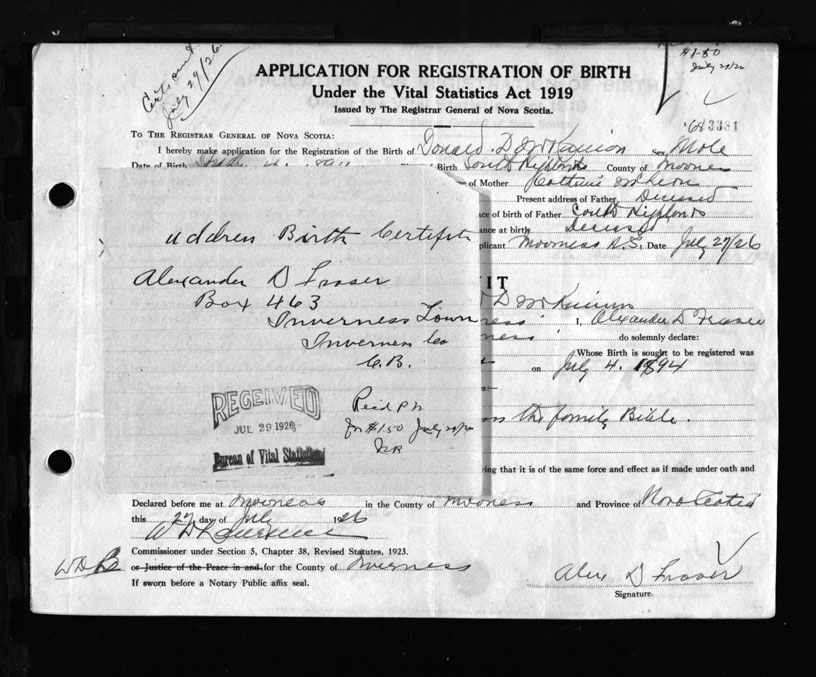 Certs sent
July 29/26
$1.50
July 29/26
APPLICATION FOR REGISTRATION OF BIRTH
Under the Vital Statistics Act 1919
Issued by The Registrar General of Nova Scotia.
3381
TO THE REGISTRAR GENERAL OF NOVA SCOTIA:
I hereby make application for the Registration of the Birth of Donald D Sex Male
Date of Birth Birth South County of
of Mother
Present address of Father Deceased
of birth of Father South
at birth Deceased
Date July 27/26
Address Birth Certificate
Alexander D Fraser
Box 463
Inverness Town
Inverness Co
C.B.
RECEIVED
JUL 29 1926
Bureau of Vital Statistics
Recd P N
for $1.50 July 29/26
IT
D
I, Alexander D Fraser
do solemnly declare:
Whose Birth is sought to be registered was
on July 4. 1894
the family Bible.
ing that it is of the same force and effect as if made under oath and
Declared before me at Inverness in the County of Inverness and Province of Nova Scotia
this 27 day of July 1926
Commissioner under Section 5, Chapter 38, Revised Statutes, 1923.
or Justice of the Peace in and for the County of Inverness
If sworn before a Notary Public affix seal.
Alex D Fraser
Signature.